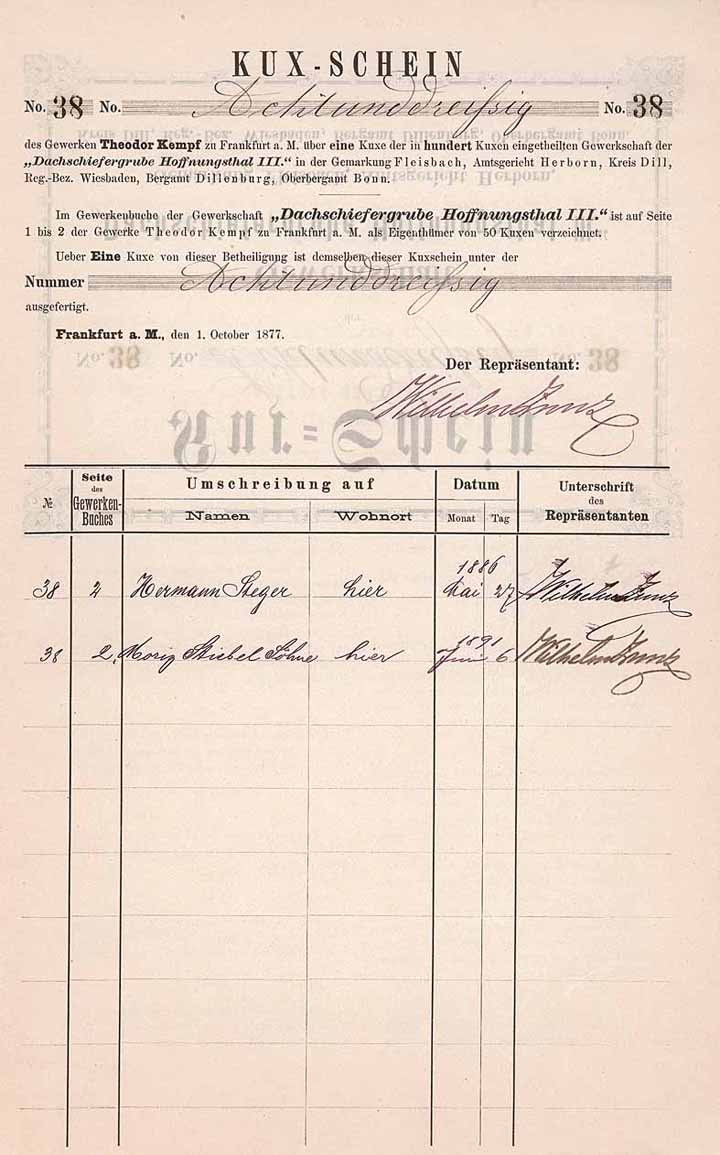 KUX-SCHEIN
No. 38 No. Achtunddreißig No. 38
des Gewerken Theodor Kempf zu Frankfurt a. M. über eine Kuxe der in hundert Kuxen eingetheilten Gewerkschaft der
„Dachschiefergrube Hoffnungsthal III.“ in der Gemarkung Fleisbach, Amtsgericht Herborn, Kreis Dill,
Reg.-Bez. Wiesbaden, Bergamt Dillenburg, Oberbergamt Bonn.
Im Gewerkenbuche der Gewerkschaft „Dachschiefergrube Hoffnungsthal III.“ ist auf Seite
1 bis 2 der Gewerke Theodor Kempf zu Frankfurt a. M. als Eigenthümer von 50 Kuxen verzeichnet.
Ueber Eine Kuxe von dieser Betheiligung ist demselben dieser Kuxschein unter der
Nummer Achtunddreißig
ausgefertigt.
Frankfurt a. M., den 1. October 1877.
Der Repräsentant:
Wilhelm Zunz
№ Seite des Gewerken-Buches Umschreibung auf Datum Unterschrift des Repräsentanten
Namen Wohnort Monat Tag
1886
38 2 Hermann Steger hier Mai 27 Wilhelm Zunz
1891
38 2, Moriz Stiebel Söhne hier Juni 6 Wilhelm Zunz